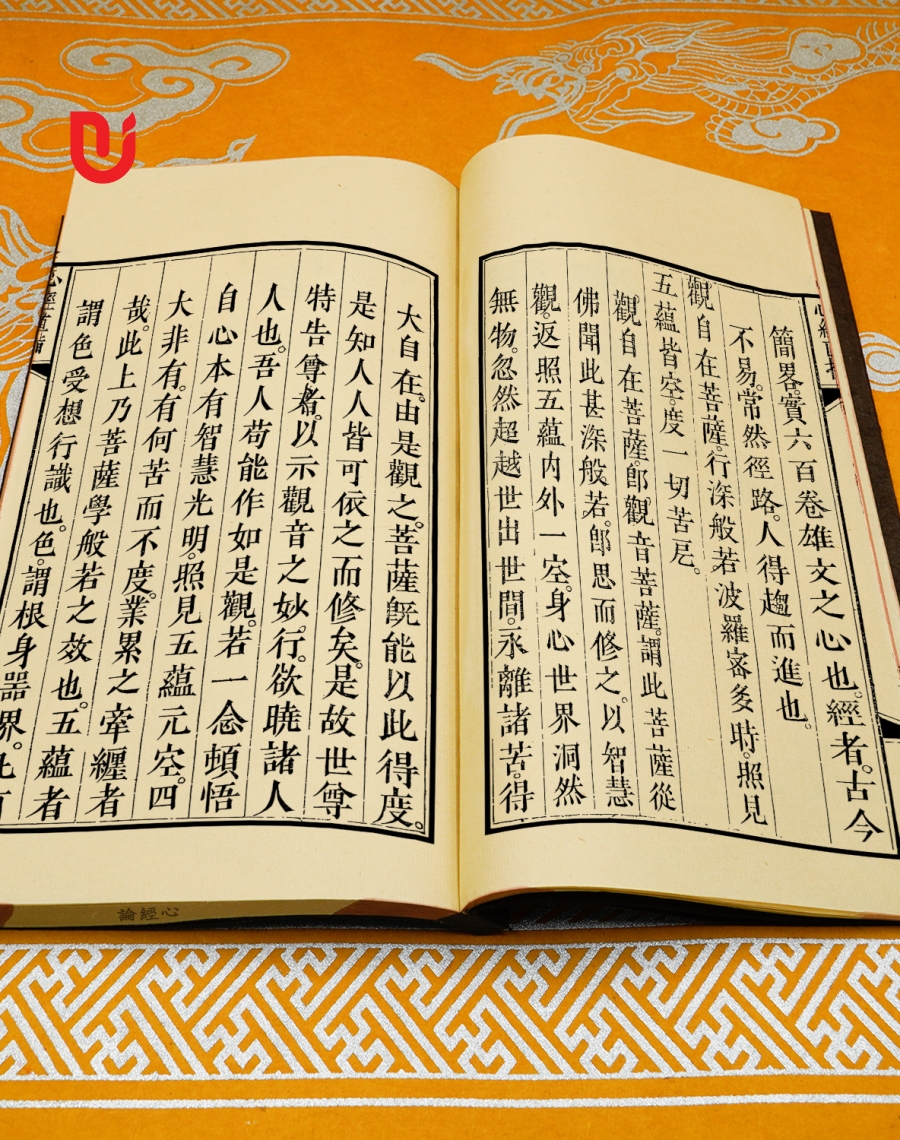 簡畧。實六百卷雄文之心也。經者。古今
不易。常然徑路。人得趨而進也。
觀自在菩薩。行深般若波羅蜜多時。照見
五蘊皆空。度一切苦厄。
觀自在菩薩。卽觀音菩薩。謂此菩薩從
佛聞此甚深般若。卽思而修之。以智慧
觀。返照五蘊內外一空。身心世界洞然
無物。忽然超越世出世間。永離諸苦。得
大自在。由是觀之。菩薩旣能以此得度。
是知人人皆可依之而修矣。是故世尊
特告尊者。以示觀音之妙行。欲曉諸人
人也。吾人苟能作如是觀。若一念頓悟
自心本有智慧光明。照見五蘊元空。四
大非有。有何苦而不度。業累之牽纏者
哉。此上乃菩薩學般若之效也。五蘊者
謂色受想行識也。色。謂根身器界。
心經論